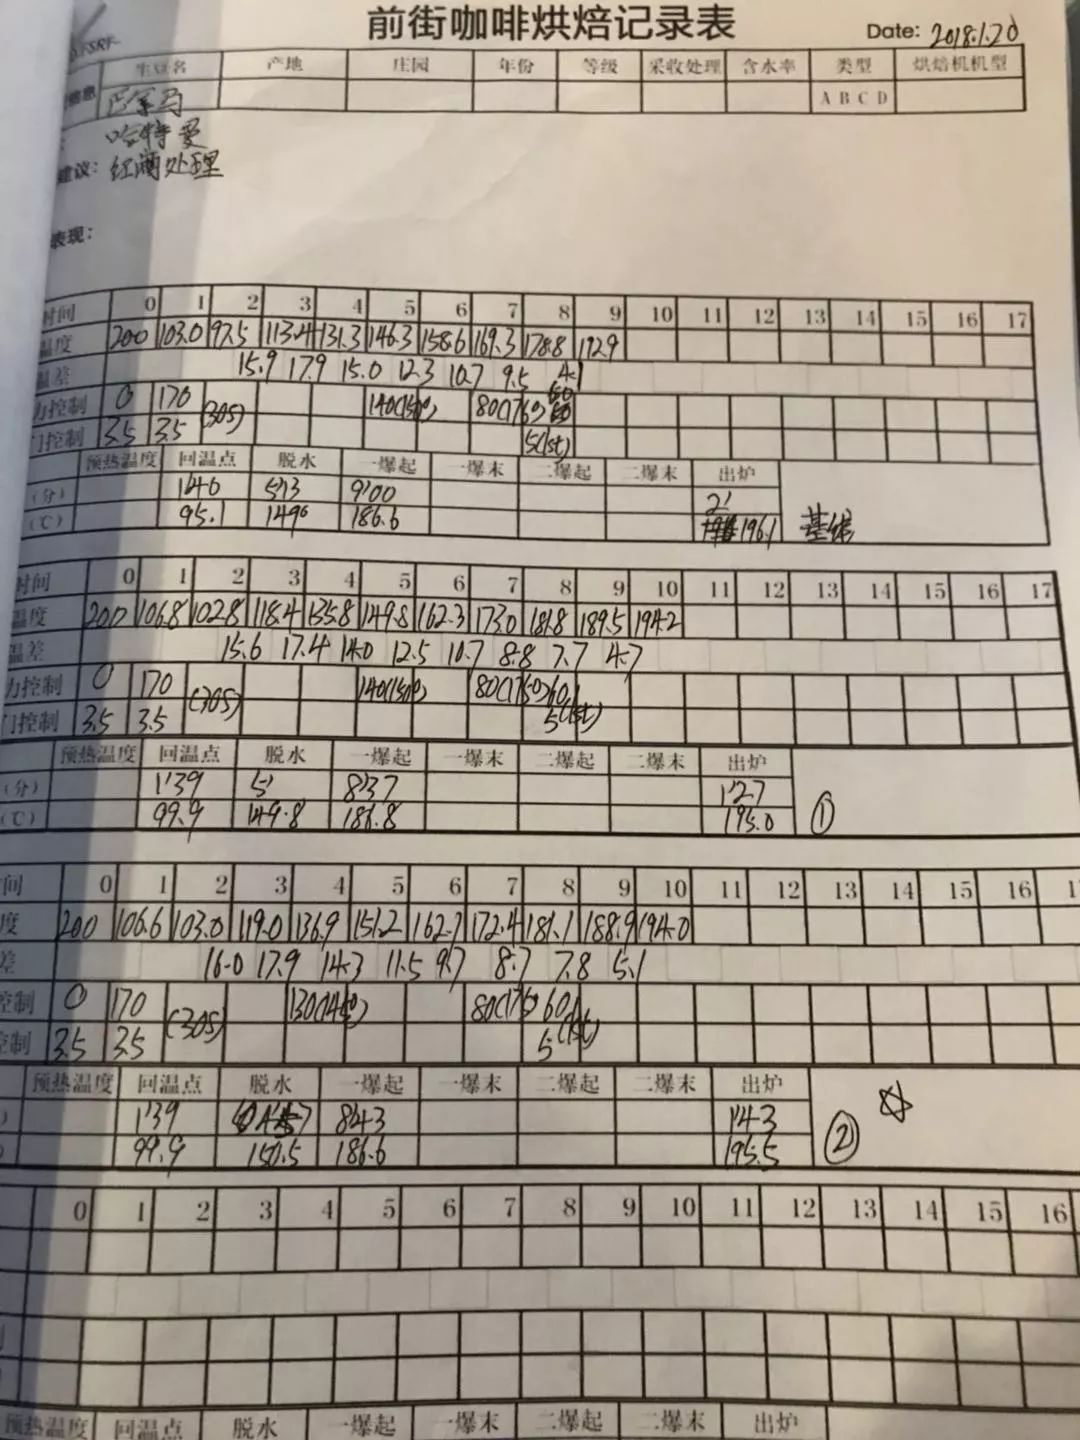 前街咖啡烘焙记录表
Date: 2018.1.20
生豆名 产地 庄园 年份 等级 采收处理 含水率 类型 烘焙机机型
信息 巴拿马 A B C D
哈特曼
建议: 红酒处理
表现:
时间 0 1 2 3 4 5 6 7 8 9 10 11 12 13 14 15 16 17
温度 200 103.0 97.5 113.4 131.3 146.3 158.6 169.3 178.8 192.9
温差 15.9 17.9 15.0 12.3 10.7 9.5 4.1
力控制 0 170 (30S) 140(150°) 80(176°) 60
门控制 3.5 3.5 5(1st)
预热温度 回温点 脱水 一爆起 一爆末 二爆起 二爆末 出炉
(分) 1'40 5'13 9'00 2'
(℃) 95.1 149° 186.6 196.1
时间 0 1 2 3 4 5 6 7 8 9 10 11 12 13 14 15 16 17
温度 200 106.8 102.8 118.4 135.8 149.8 162.3 173.0 181.8 189.5 194.2
温差 15.6 17.4 14.0 12.5 10.7 8.8 7.7 4.7
力控制 0 170 (30S) 140(150°) 80(175°) 60
门控制 3.5 3.5 5(1st)
预热温度 回温点 脱水 一爆起 一爆末 二爆起 二爆末 出炉
(分) 1'39 5' 8'37 1'27
(℃) 99.9 149.8 186.8 195.0 ①
间 0 1 2 3 4 5 6 7 8 9 10 11 12 13 14 15 16 1
度 200 106.6 103.0 119.0 136.9 151.2 162.7 172.4 181.1 188.9 194.0
差 16.0 17.9 14.3 11.5 9.7 8.7 7.8 5.1
控制 0 170 (30S) 130(145°) 80(175°) 60
控制 3.5 3.5 5(1st)
预热温度 回温点 脱水 一爆起 一爆末 二爆起 二爆末 出炉
1'39 8'43 1'43
99.9 150.5 186.6 195.5 ②
0 1 2 3 4 5 6 7 8 9 10 11 12 13 14 15 16
预热温度 回温点 脱水 一爆起 一爆末 二爆起 二爆末 出炉